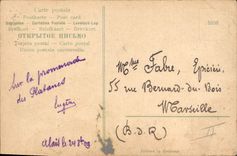 Carte postale
Postkarte — Post card
Cartolina Postale
Briefkart — Briefkaart — Brevkort
ОТКРЫТОЕ ПИСЬМО
Tarjeta postal — Carta postal
Union postale universelle
Sur la promenade
des Platanes
Eugène
Alais le
Mme Fabre, Epicière
55 rue Bernard-du-Bois
Marseille
(B-d-R)